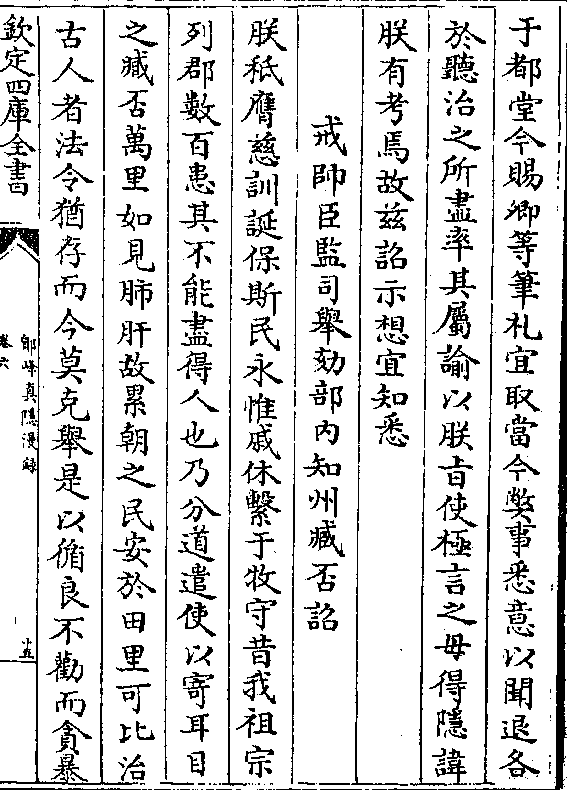 于都堂今賜卿等筆札宜取當今獘事悉意以聞退各
於聽治之所盡率其屬諭以朕㫖使極言之毋得隱諱
朕有考焉故兹詔示想宜知悉
戒帥臣監司舉劾部內知州臧否詔
朕祗膺慈訓誕保斯民永惟戚休繫于牧守昔我祖宗
列郡數百患其不能盡得人也乃分道遣使以寄耳目
之臧否萬里如見肺肝故累朝之民安於田里可比治
古人者法令猶存而今莫克舉是以循良不勸而貪暴
欽定四庫全書
鄮峰真隱漫録
卷六
十五